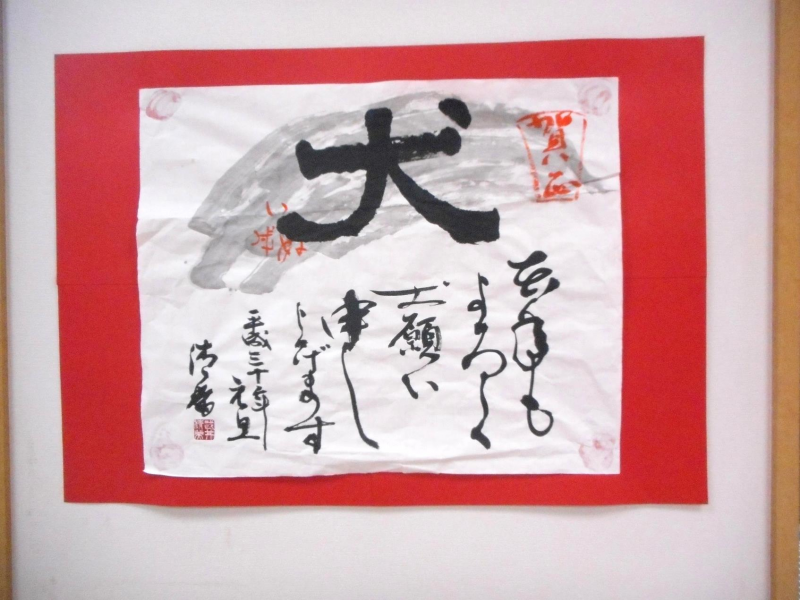 犬
賀正
いぬ年
本年も
よろしく
お願い
申し
上げます
平成三十年
元旦